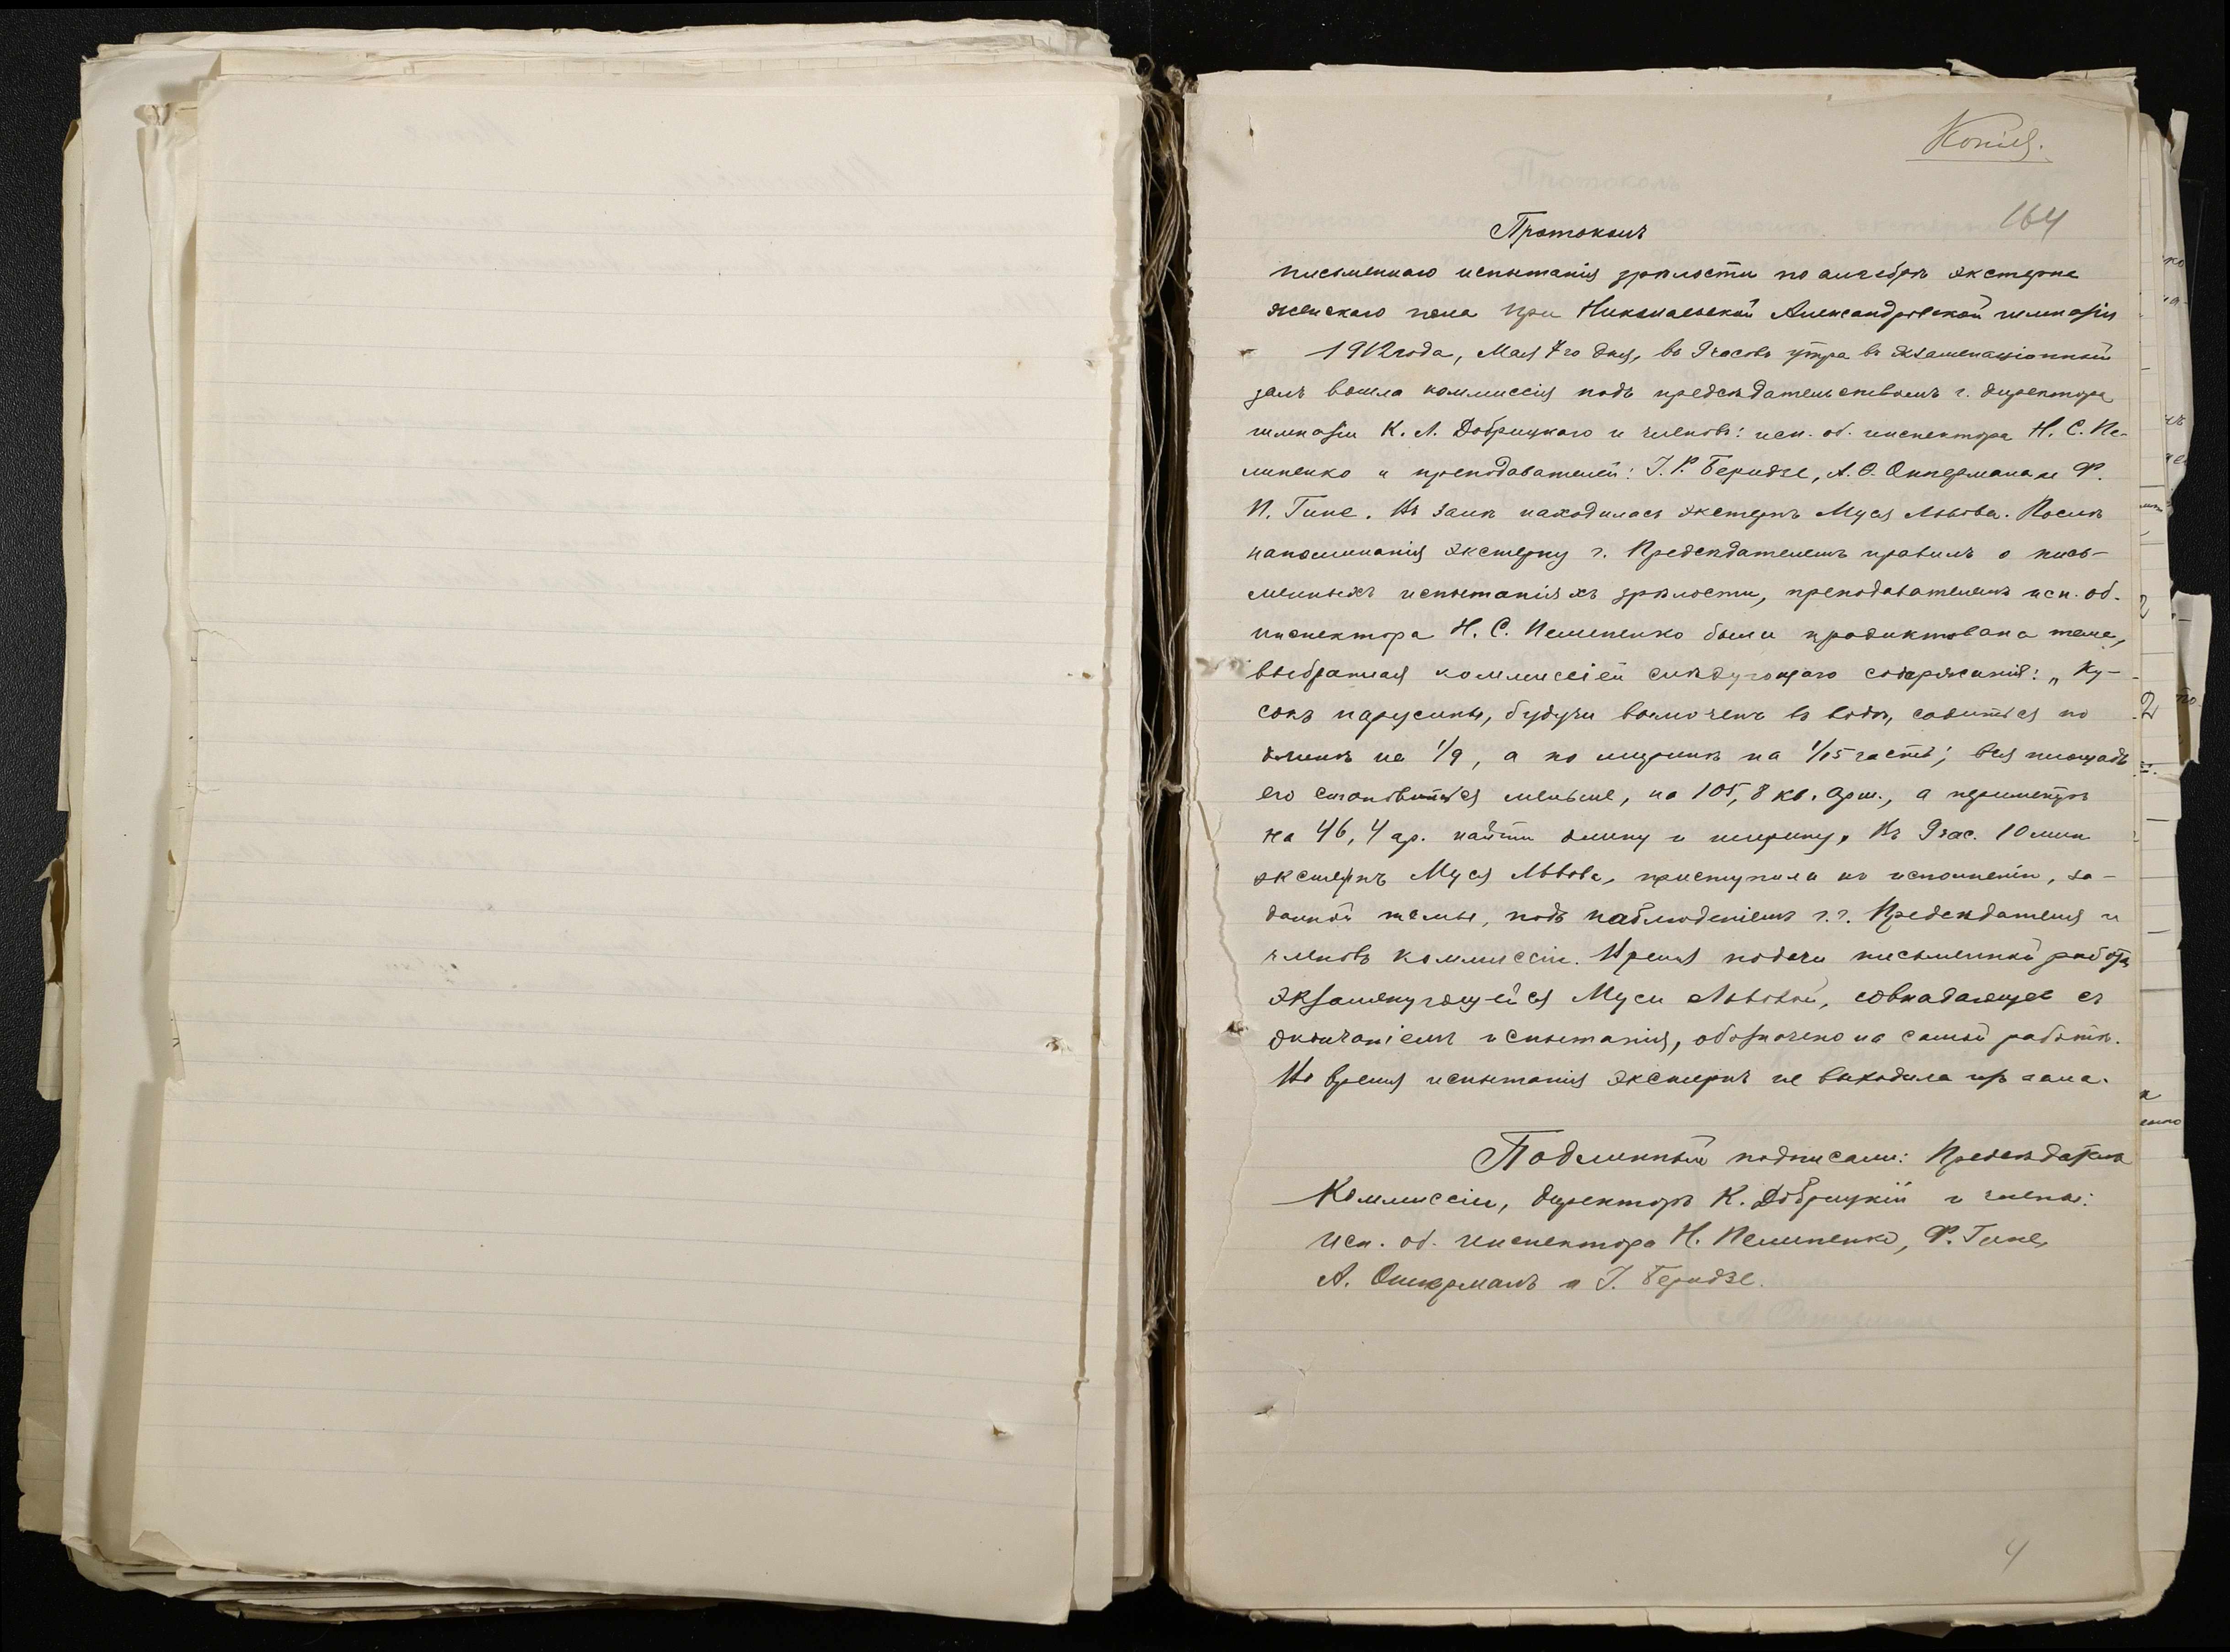 Копія.
164
Протоколъ
письменнаго испытанія зрѣлости по алгебрѣ экстерна
женскаго пола при Николаевской Александровской гимназіи
1912 года, Мая 7го дня, въ 9 часовъ утра въ экзаменаціонный
залъ вошла коммиссія подъ предсѣдательствомъ г. директора
гимназіи К. Л. Добрицкаго и членовъ: исп. об. инспектора Н. С. Пе-
липенко и преподавателей: І. Р. Беридзе, А. О. Оппермана и Ф.
И. Гине. Въ залѣ находилась экстернъ Муся Львова. Послѣ
напоминанія экстерну г. Предсѣдателемъ правилъ о пись-
менныхъ испытаніяхъ зрѣлости, преподавателемъ исп. об.
инспектора Н. С. Пелипенко была продиктована тема,
выбранная коммиссіей слѣдующаго содержанія: „Ку-
сокъ парусины, будучи вымоченъ въ водѣ, садится по
длинѣ на 1/9, а по ширинѣ на 1/15 часть; вся площадь
его становится меньше, на 105,8 кв. арш., а периметръ
на 46,4 ар. найти длину и ширину„ Въ 9 час. 10 мин
экстернъ Муся Львова, приступила къ исполненію, за-
данной темы, подъ наблюденіемъ г.г. Предсѣдателя и
членовъ коммиссіи. Время подачи письменной работы
экзаменующейся Муси Львовой, совпадающее съ
окончаніемъ испытанія, обозначено на самой работѣ.
Во время испытанія экстернъ не выходила изъ зала.
Подлинный подписали: Предсѣдатель
Коммиссіи, директоръ К. Добрицкій и члены:
исп. об. инспектора Н. Пелипенко, Ф. Гине,
А. Опперманъ и І. Беридзе.
4